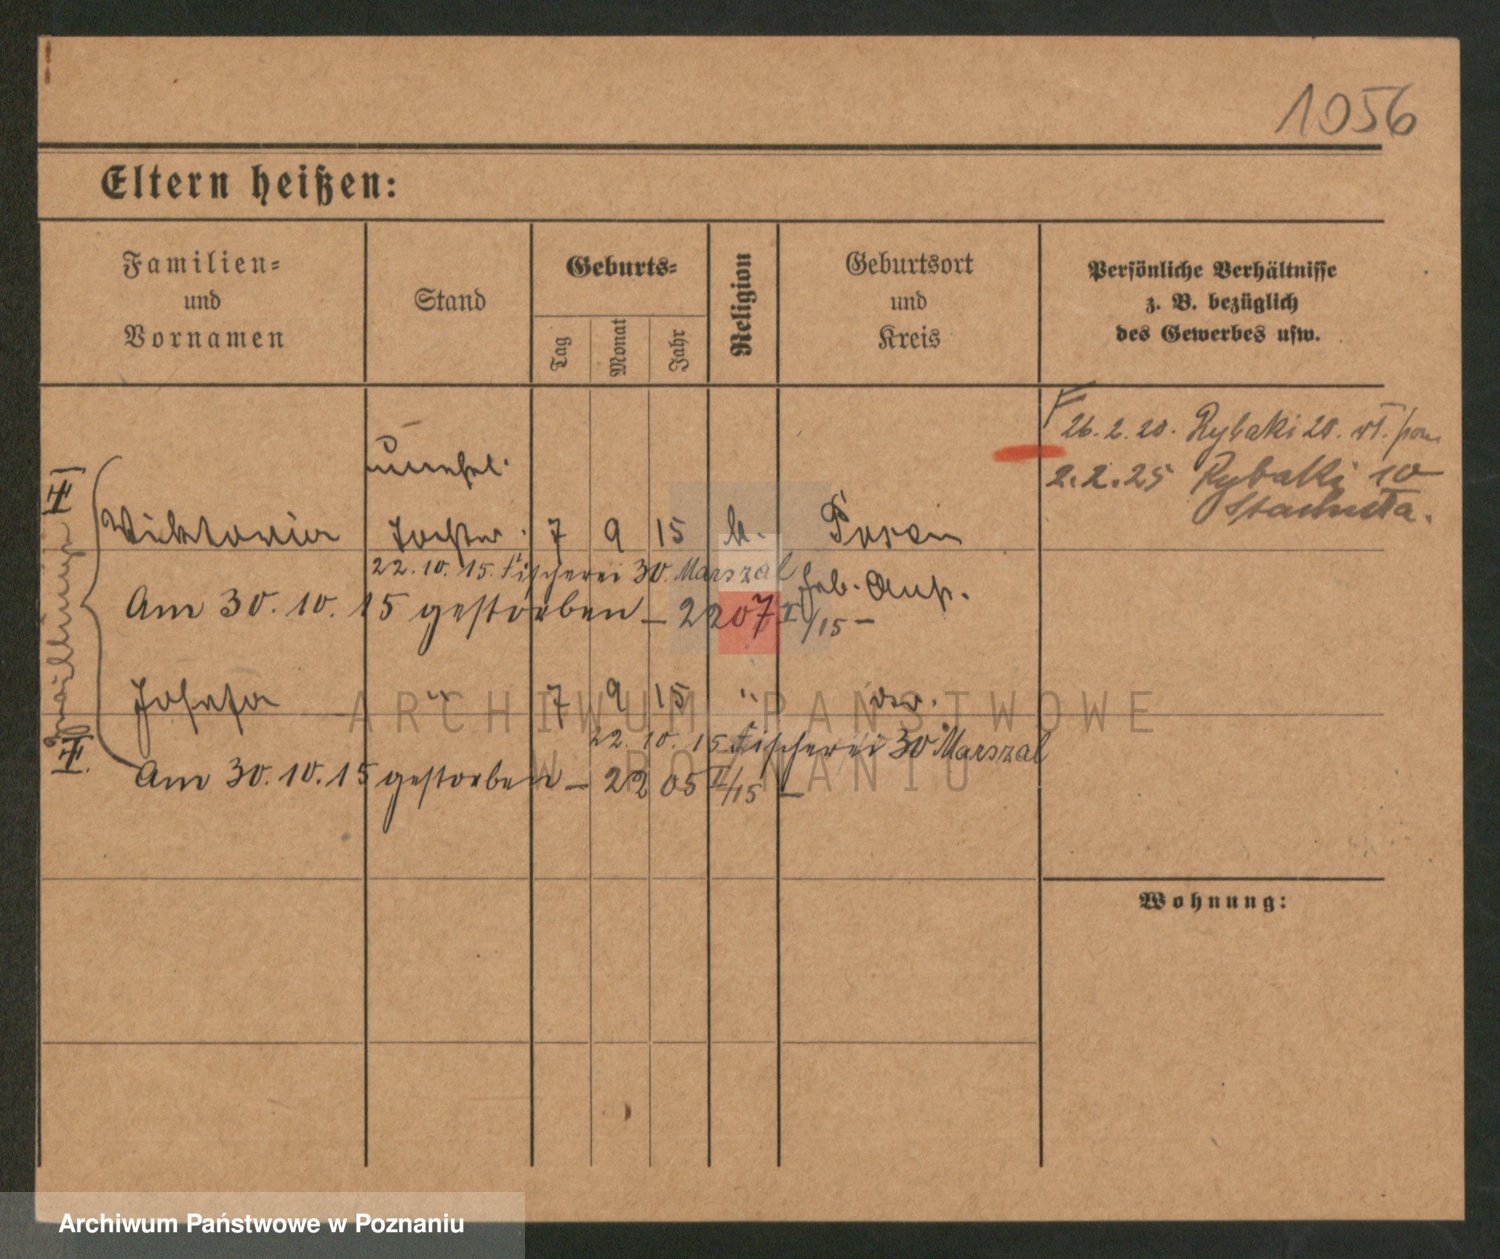 1056
Eltern heißen:
Familien-
und
Vornamen
Stand
Geburts-
Tag
Monat
Jahr
Religion
Geburtsort
und
Kreis
Persönliche Verhältnisse
z. B. bezüglich
des Gewerbes usw.
26.2.20. Rybaki 20.
2.2.25 Rybaki 10
Stachuta.
unehel.
I
Wiktoria Tochter. 7 9 15 k. Posen
22.10.15. Fischerei 30. Marszal
Geb. Anst.
Am 30.10.15 gestorben – 2207 II/15 –
Zwillinge
Josefa " 7 9 15 " do.
22.10.15 Fischerei 30 Marszal
II.
Am 30.10.15 gestorben – 2205 II/15 –
Wohnung:
ARCHIWUM PAŃSTWOWE
W POZNANIU
Archiwum Państwowe w Poznaniu